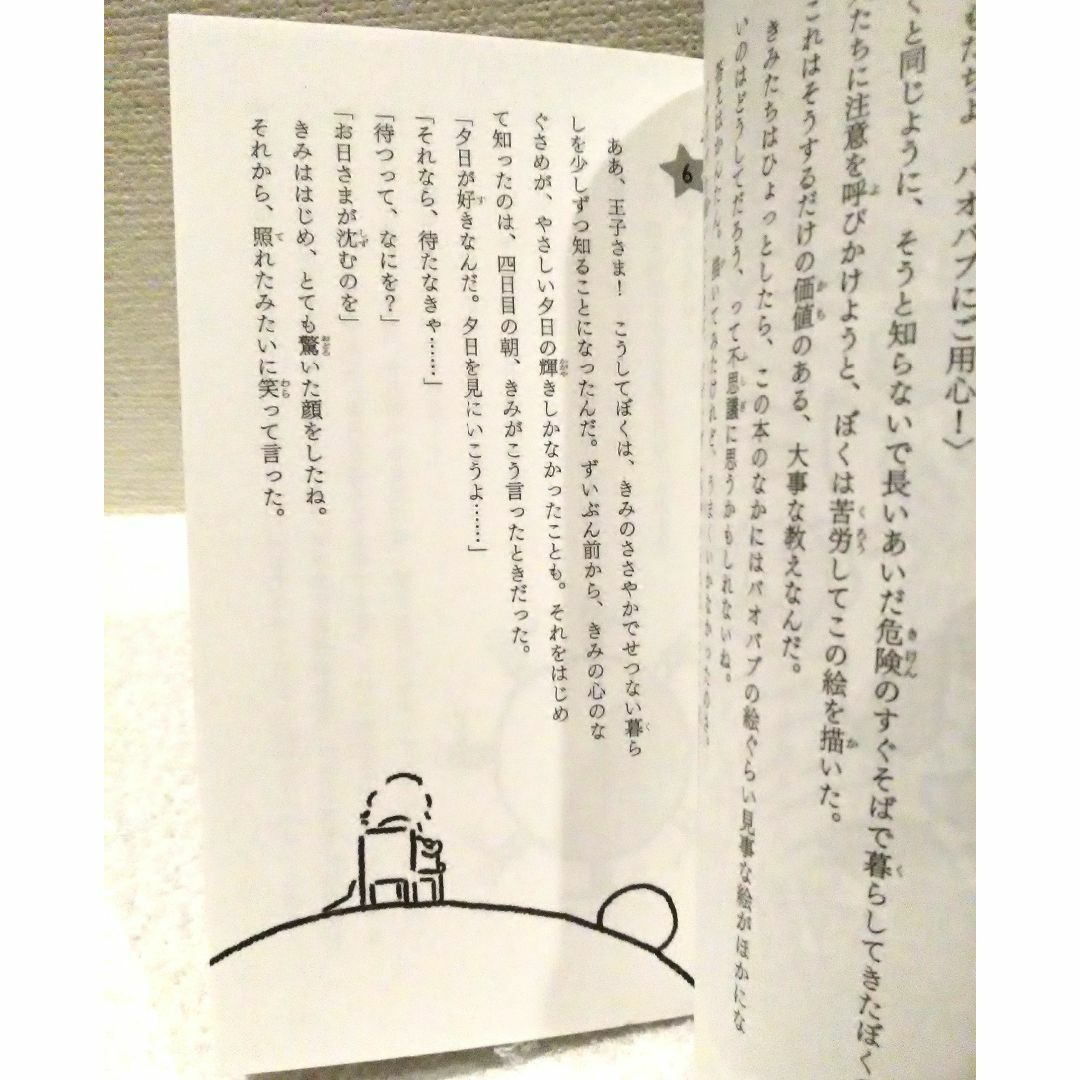 もだちよ　バオバブにご用心！〉
くと同じように、そうと知らないで長いあいだ危険のすぐそばで暮らしてきたぼく
たちに注意を呼びかけようと、ぼくは苦労してこの絵を描いた。
これはそうするだけの価値のある、大事な教えなんだ。
きみたちはひょっとしたら、この本のなかにはバオバブの絵ぐらい見事な絵がほかにな
いのはどうしてだろう、って不思議に思うかもしれないね。
答えはかんたん。描いてみたけれど、うまくいかなかったのさ。
6
ああ、王子さま！　こうしてぼくは、きみのささやかでせつない暮ら
しを少しずつ知ることになったんだ。ずいぶん前から、きみの心のな
ぐさめが、やさしい夕日の輝きしかなかったことも。それをはじめ
て知ったのは、四日目の朝、きみがこう言ったときだった。
「夕日が好きなんだ。夕日を見にいこうよ……」
「それなら、待たなきゃ……」
「待つって、なにを？」
「お日さまが沈むのを」
きみははじめ、とても驚いた顔をしたね。
それから、照れたみたいに笑って言った。